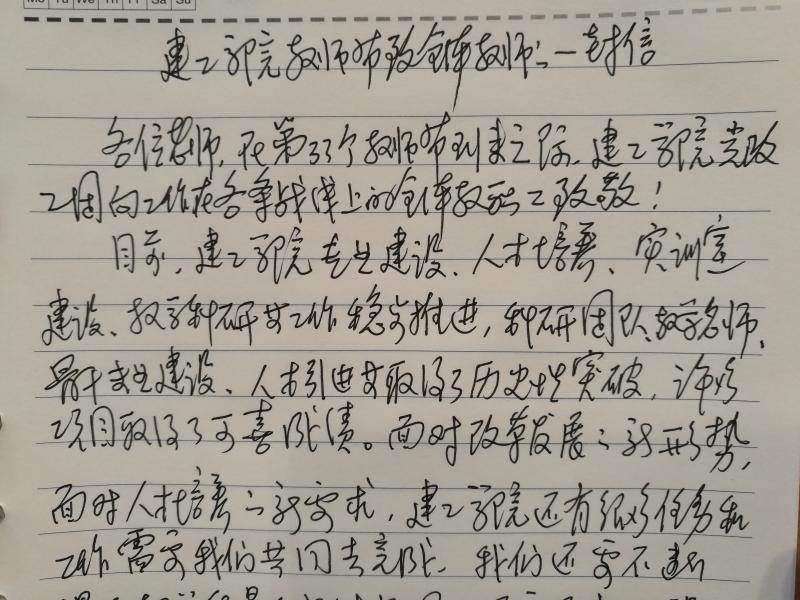 Mo Tu We Th Fr Sa Su
建工学院教师节致全体教师的一封信
各位老师,在第33个教师节到来之际,建工学院党政
工团向工作在各条战线上的全体教职工致敬!
目前,建工学院专业建设、人才培养、实训室
建设、教学科研等工作稳步推进,科研团队、教学名师、
骨干专业建设、人才引进等取得了历史性突破,许多
项目取得了可喜成绩。面对改革发展的新形势,
面对人才培养的新要求,建工学院还有很多任务和
工作需要我们共同去完成。我们还要不断